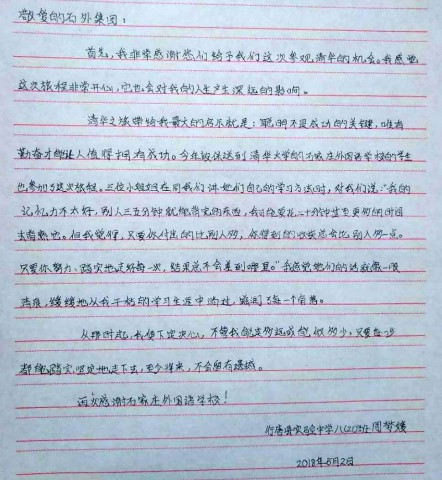 敬爱的石外集团：
首先，我非常感谢您们给予我们这次参观清华的机会。我感觉
这次旅程非常开心，它也会对我的人生产生深远的影响。
清华之旅带给我最大的启示就是：聪明不是成功的关键，唯有
勤奋才能让人值得拥有成功。今年被保送到清华大学的石家庄外国语学校的学生
也参加了这次旅程。三位小姐姐在同我们讲她们自己的学习方法时，对我们说："我的
记忆力不太好，别人三五分钟就能背完的东西，我可能要花二十分钟甚至更多的时间
去背熟它。但我觉得，只要你付出的比别人多，你得到的收获总会比别人多一点。
只要你努力、踏实地走好每一次，结果总不会差到哪里。"我感觉她们的话就像一股
清泉，缓缓地从我干枯的学习生活中流过，滋润了每一个角落。
从那时起，我便下定决心，不管我能走多远或能做多少，只要每一步
都能踏实、坚定地走下去，至少将来，不会留有遗憾。
再次感谢石家庄外国语学校！
行唐县实验中学八(2)班 周梦媛
2018年5月2日